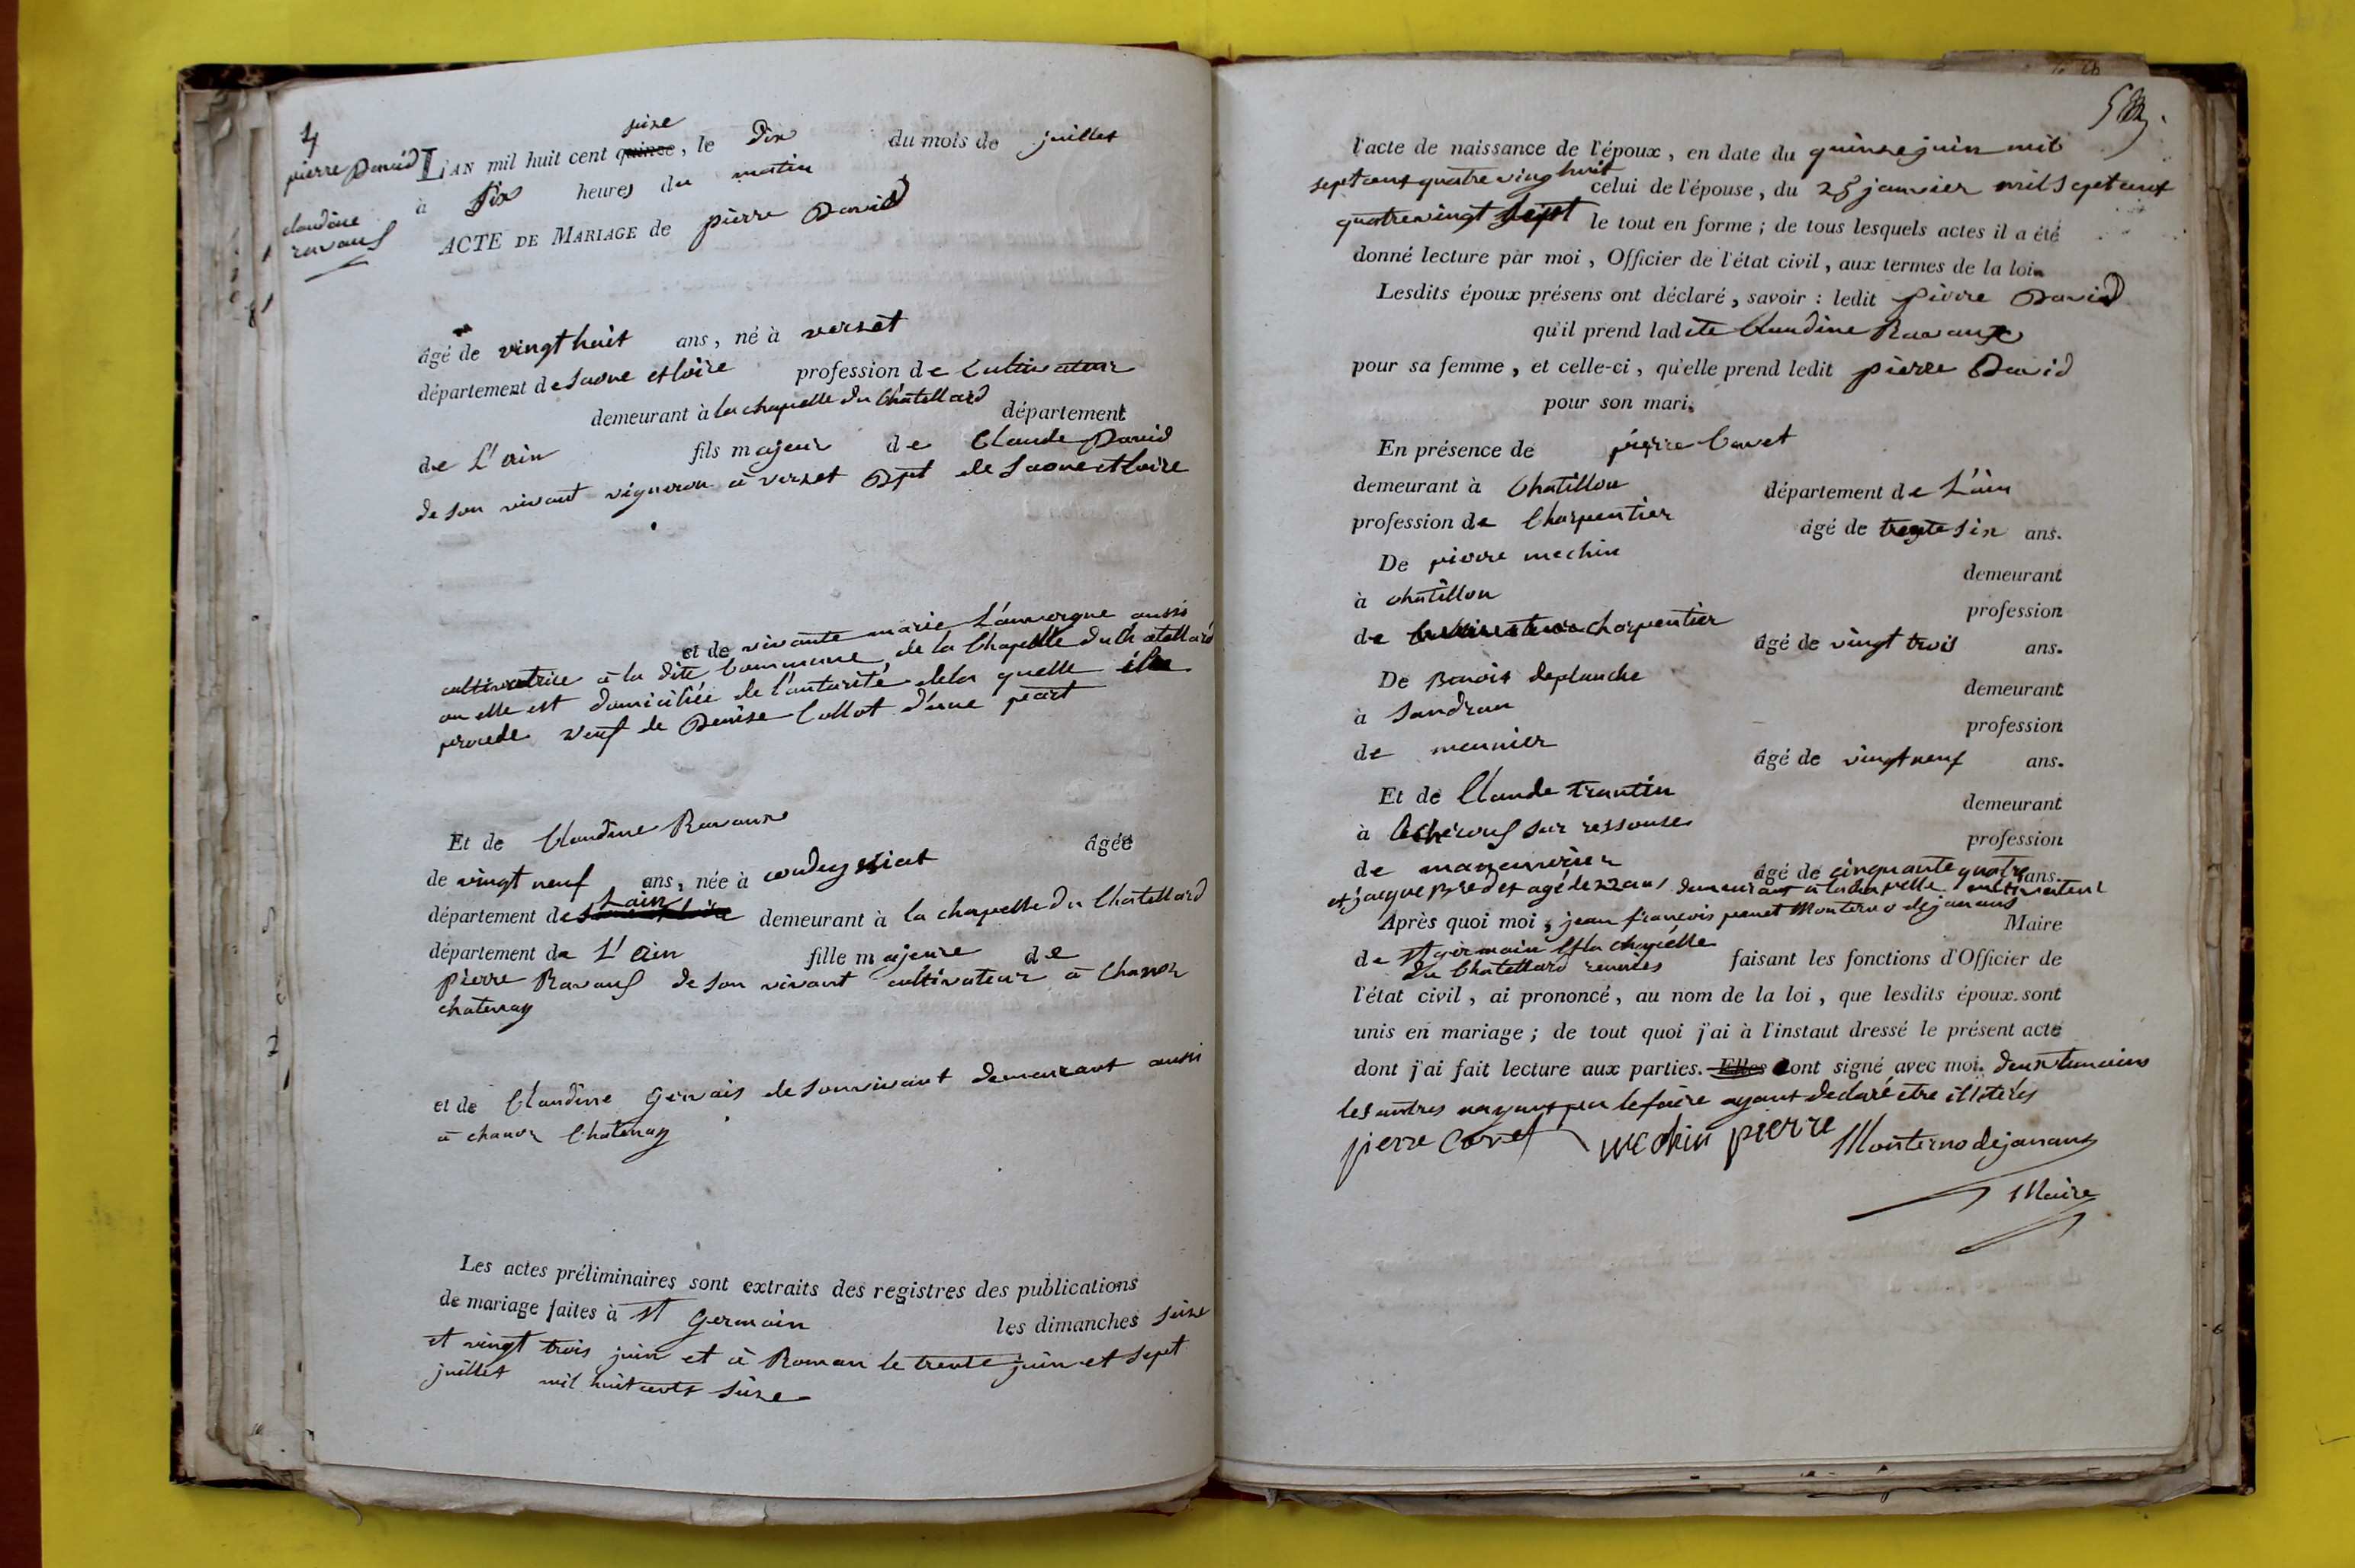 4
pierre David
claudine
ravaux
L'AN mil huit cent quinze seize, le Dix du mois de juillet
à Six heures du matin
ACTE DE MARIAGE de pierre David
âgé de vingt huit ans, né à verset
département de Saone et loire profession de Cultivateur
demeurant à la chapelle du Chatellard département
de L'ain fils majeur de Claude David
de son vivant vigneron à verset Dpt de Saone et loire
et de vivante marie L'auvergne aussi
cultivatrice à la dite Commune, de la Chapelle du Chatellard
ou elle est domiciliée de l'autorité de la quelle il
procede veuf de Denise Collot d'une part
Et de Claudine Ravaux âgée
de vingt neuf ans, née à condeyssiat
département de Saone et loire L'ain demeurant à la chapelle du Chatellard
département de L'ain fille majeure de
pierre Ravaux de son vivant cultivateur à Chanoz
chatenay
et de Claudine Gervais de son vivant demeurant aussi
à chanoz Chatenay
Les actes préliminaires sont extraits des registres des publications
de mariage faites à St Germain les dimanches seize
et vingt trois juin et à Roman le trente juin et sept
juillet mil huit cents seize
l'acte de naissance de l'époux, en date du quinze juin mil
sept cent quatre ving huit celui de l'épouse, du 25 janvier mil sept cent
quatre vingt sept le tout en forme ; de tous lesquels actes il a été
donné lecture par moi, Officier de l'état civil, aux termes de la loi.
Lesdits époux présens ont déclaré, savoir : ledit pierre David
qu'il prend ladite Claudine Ravaux
pour sa femme, et celle-ci, qu'elle prend ledit pierre David
pour son mari.
En présence de pierre Cavet
demeurant à Chatillon département de L'ain
profession de Charpentier âgé de trente six ans.
De pierre mechin demeurant
à chatillon profession
de charpentier âgé de vingt trois ans.
De Benoit deplanche demeurant
à Sandran profession
de meunier âgé de vingt neuf ans.
Et de Claude trantin demeurant
à sur ressouse profession
de manoeuvrier âgé de cinquante quatre ans.
et jacque Bredet agé de 22 ans demeurant a la chapelle cultivateur
Après quoi moi, jean francois penet Monterno dejanans Maire
de St germain et la chapelle
du Chatellard reunies faisant les fonctions d'Officier de
l'état civil, ai prononcé, au nom de la loi, que lesdits époux sont
unis en mariage ; de tout quoi j'ai à l'instaut dressé le présent acte
dont j'ai fait lecture aux parties. Elles ont signé avec moi. deux temoins
les autres nayant pu le faire ayant declaré etre illiterés
pierre Cavet mechin pierre Monterno dejanans
Maire